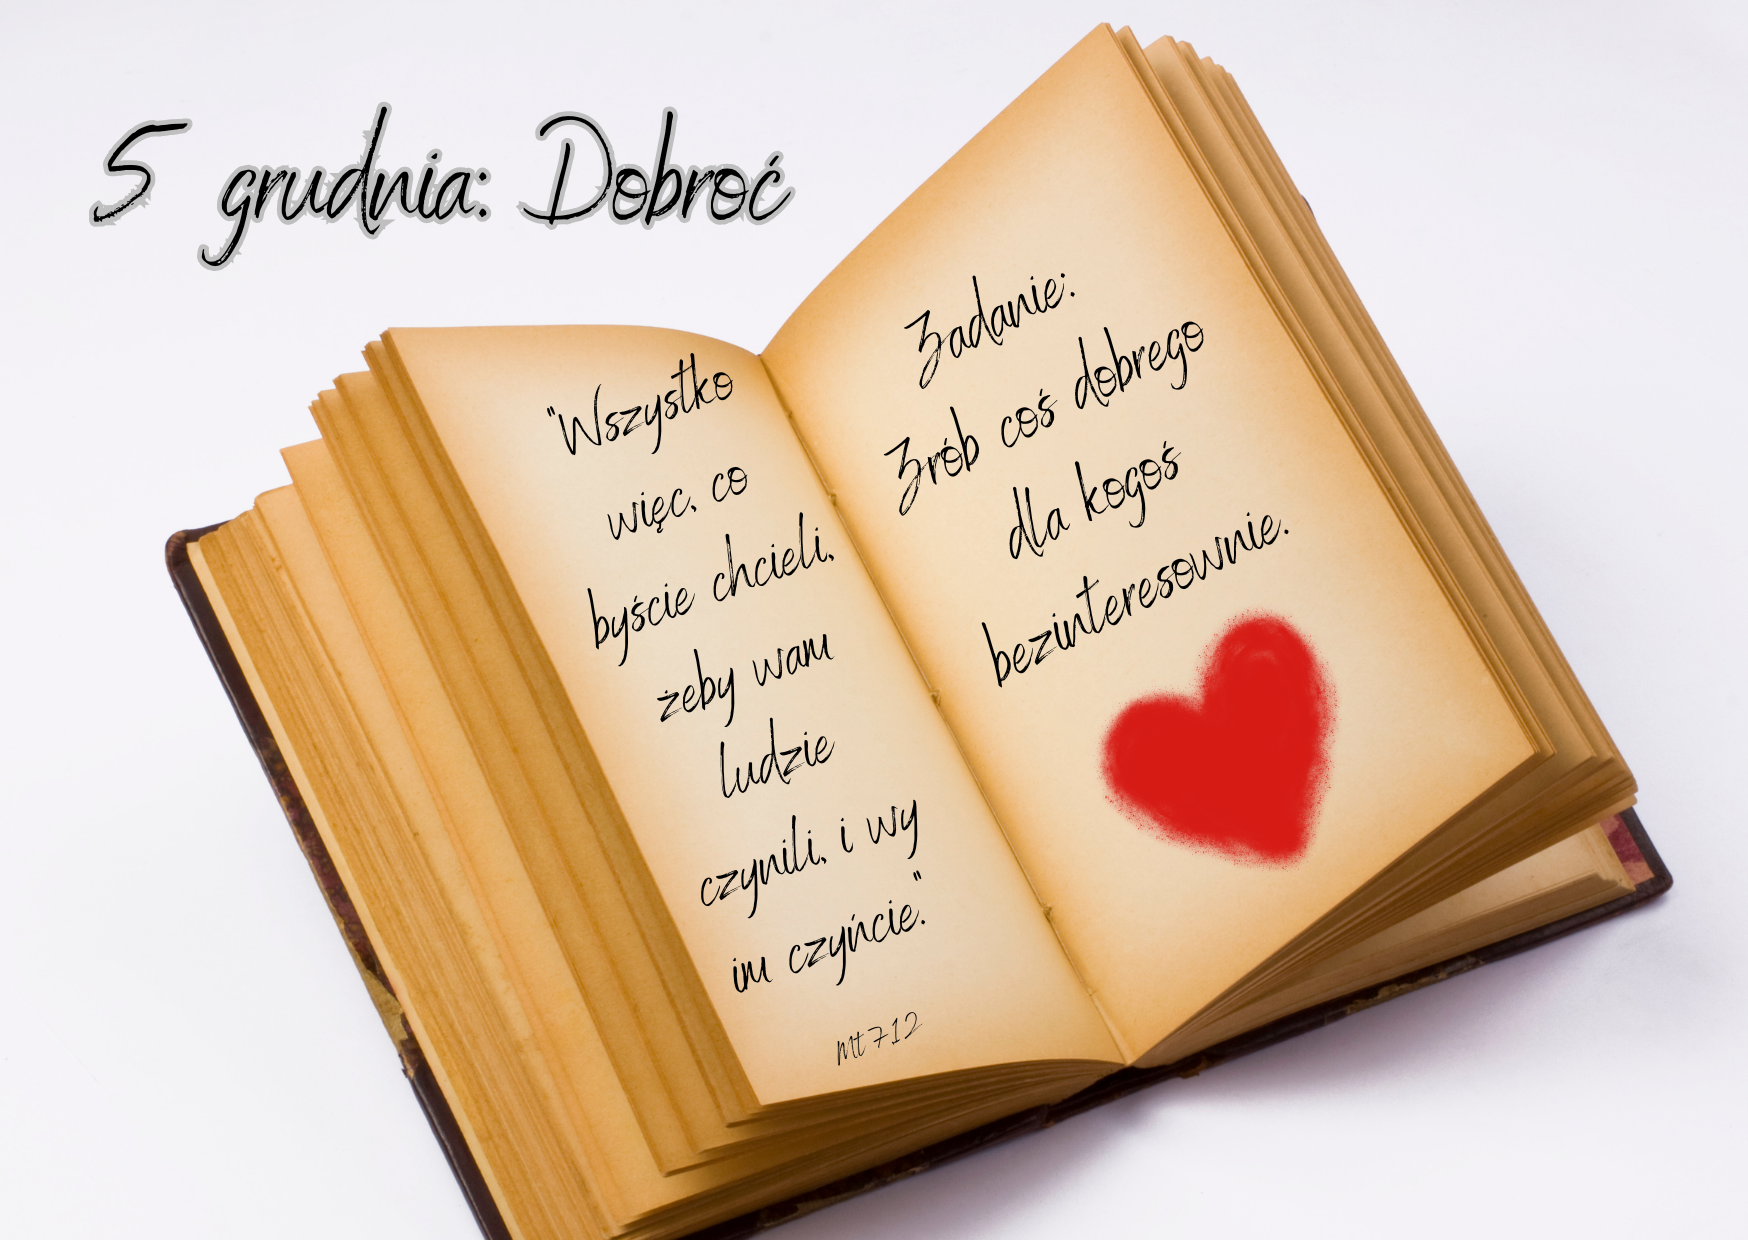 5 grudnia: Dobroć
"Wszystko
więc, co
byście chcieli,
żeby wam
ludzie
czynili, i wy
im czyńcie."
Mt 7 12
Zadanie:
Zrób coś dobrego
dla kogoś
bezinteresownie.